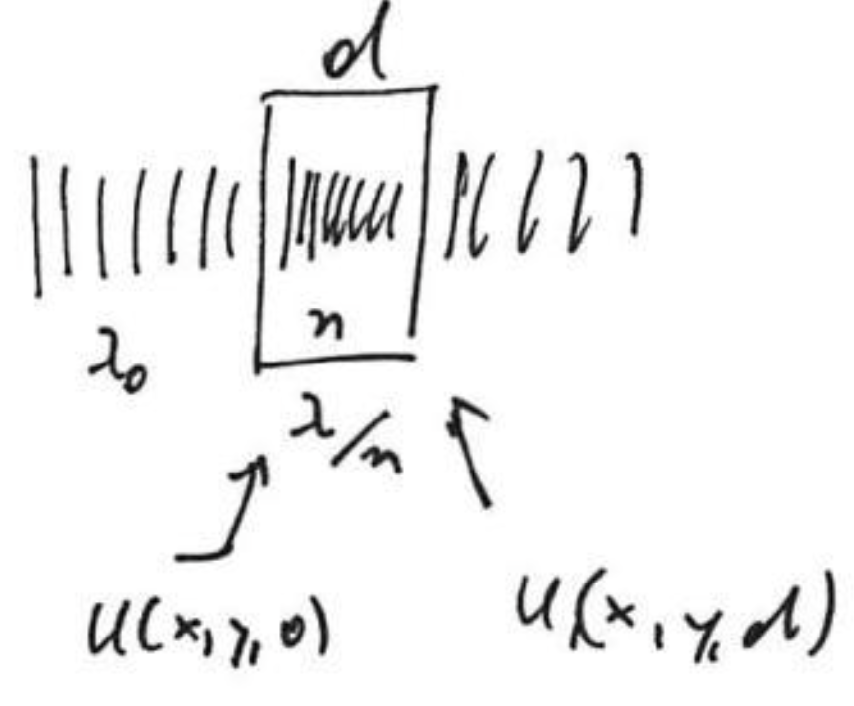 d
n
λ₀
λ/n
U(x, y, 0)
U(x, y, d)